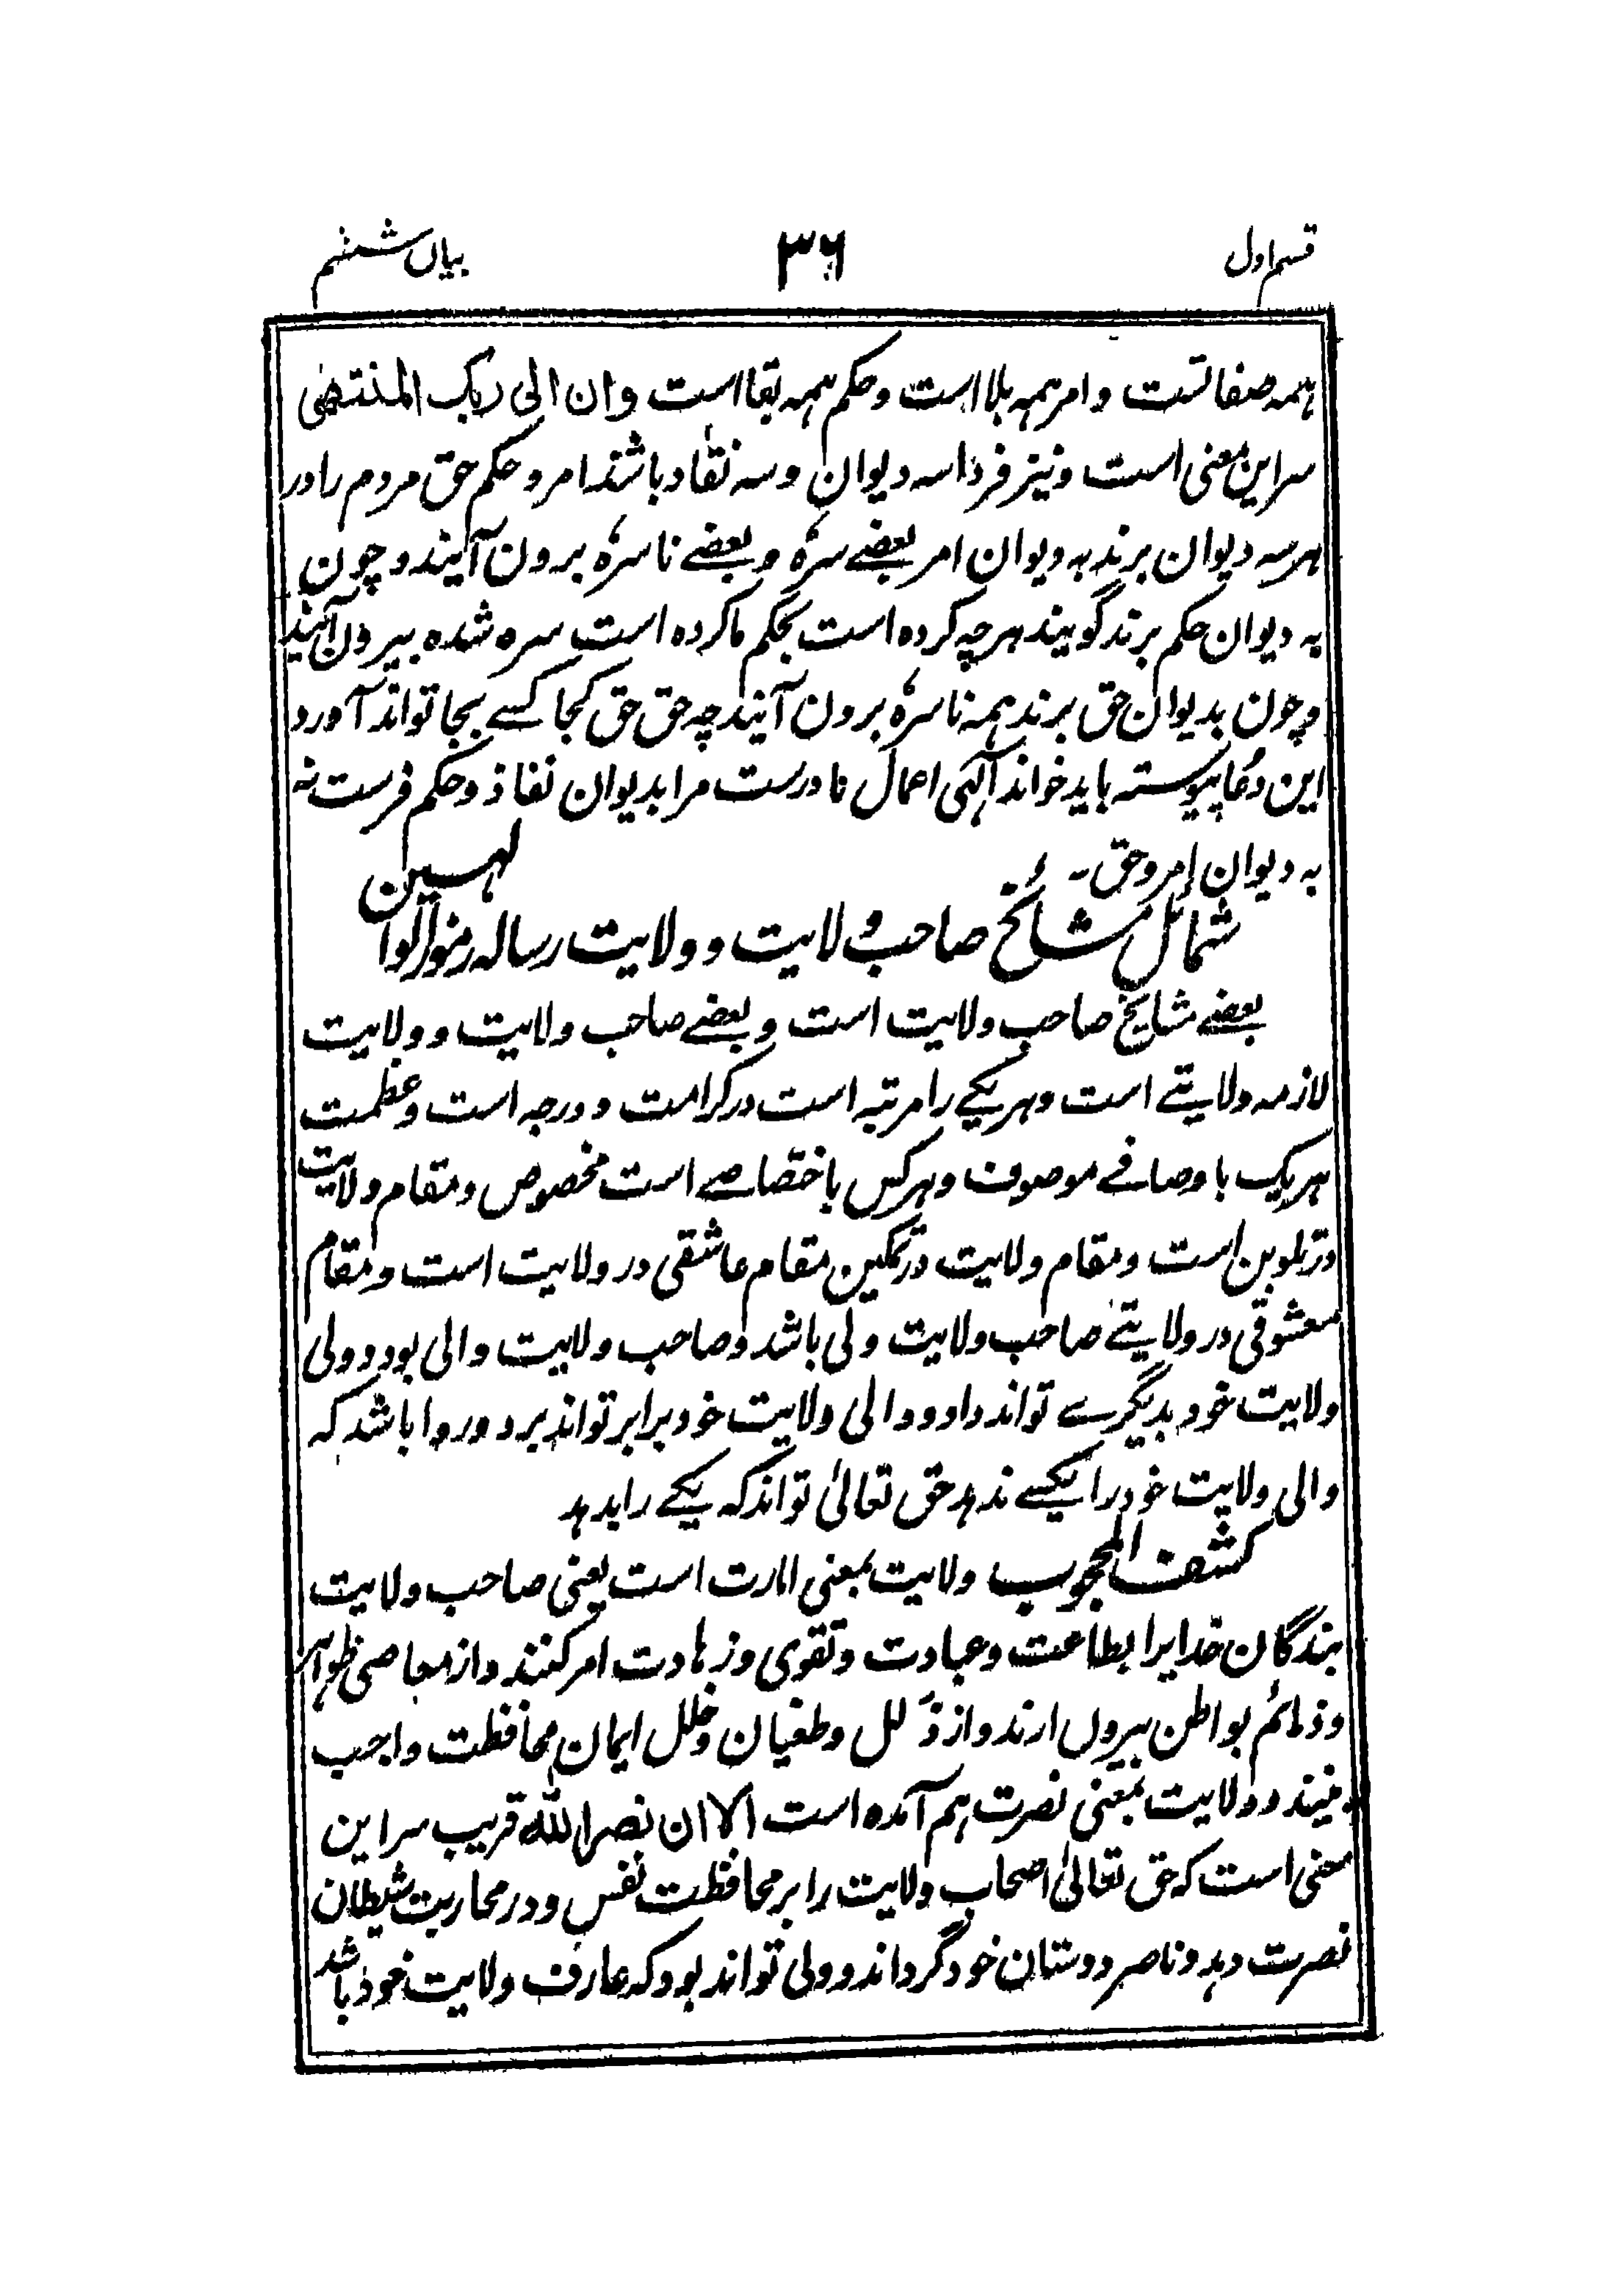 قسم اول
۳۶
بیان ششم
ہمہ صفاتست و امر ہمہ بلا است و حکم ہمہ بقا است و ان الی ربک المنتھی
سر این معنی است و نیز فردا سہ دیوان و سہ نقاد باشند امر و حکم حق مردم را در
ہر سہ دیوان برند بہ دیوان امر بعضے سرہ و بعضے ناسرہ برون آیند و چون
بہ دیوان حکم برند گویند ہر چہ کردہ است بحکم ما کردہ است سرہ شدہ بیرون آیند
و چون بدیوان حق برند ہمہ ناسرہ برون آیند چہ حق حق کجا کسے بجا تواند آورد
این دعا پیوستہ باید خواند آلہی اعمال نادرست مرا بدیوان نفاذ و حکم فرست نہ
بہ دیوان امر و حق ۔
شمائل مشائخ صاحب ولایت و ولایت رسالہ رموز الوالہین
بعضے مشایخ صاحب ولایت است و بعضے صاحب ولایت و ولایت
لازمہ ولایتے است و ہر یکے را مرتبہ است در کرامت و درجہ است و عظمت
ہر یک باوصافے موصوف و ہر کس باختصاصے است مخصوص و مقام ولایت
در تلوین است و مقام ولایت در تمکین مقام عاشقی در ولایت است و مقام
معشوقی در ولایتے صاحب ولایت ولی باشد و صاحب ولایت والی بود و ولی
ولایت خود بدیگرے تواند داد و والی ولایت خود برابر تواند برد و روا باشد کہ
والی ولایت خود را بکسے ندہد حق تعالیٰ تواند کہ یکے را بدہد
کشف المحجوب ولایت بمعنی امارت است یعنی صاحب ولایت
بندگان خدایرا بطاعت و عبادت و تقوی و زہادت امر کنند و از معاصی ظواہر
و ذمائم بواطن بیروں ارند و از ذلل و طغیان و خلل ایمان محافظت واجب
بینند و ولایت بمعنی نصرت ہم آمدہ است الا ان نصر اللہ قریب سر این
معنی است کہ حق تعالیٰ اصحاب ولایت را بر محافظت نفس و در محاربت شیطان
نصرت دہد و ناصر دوستان خود گرداند و ولی تواند بود کہ عارف ولایت خود باشد